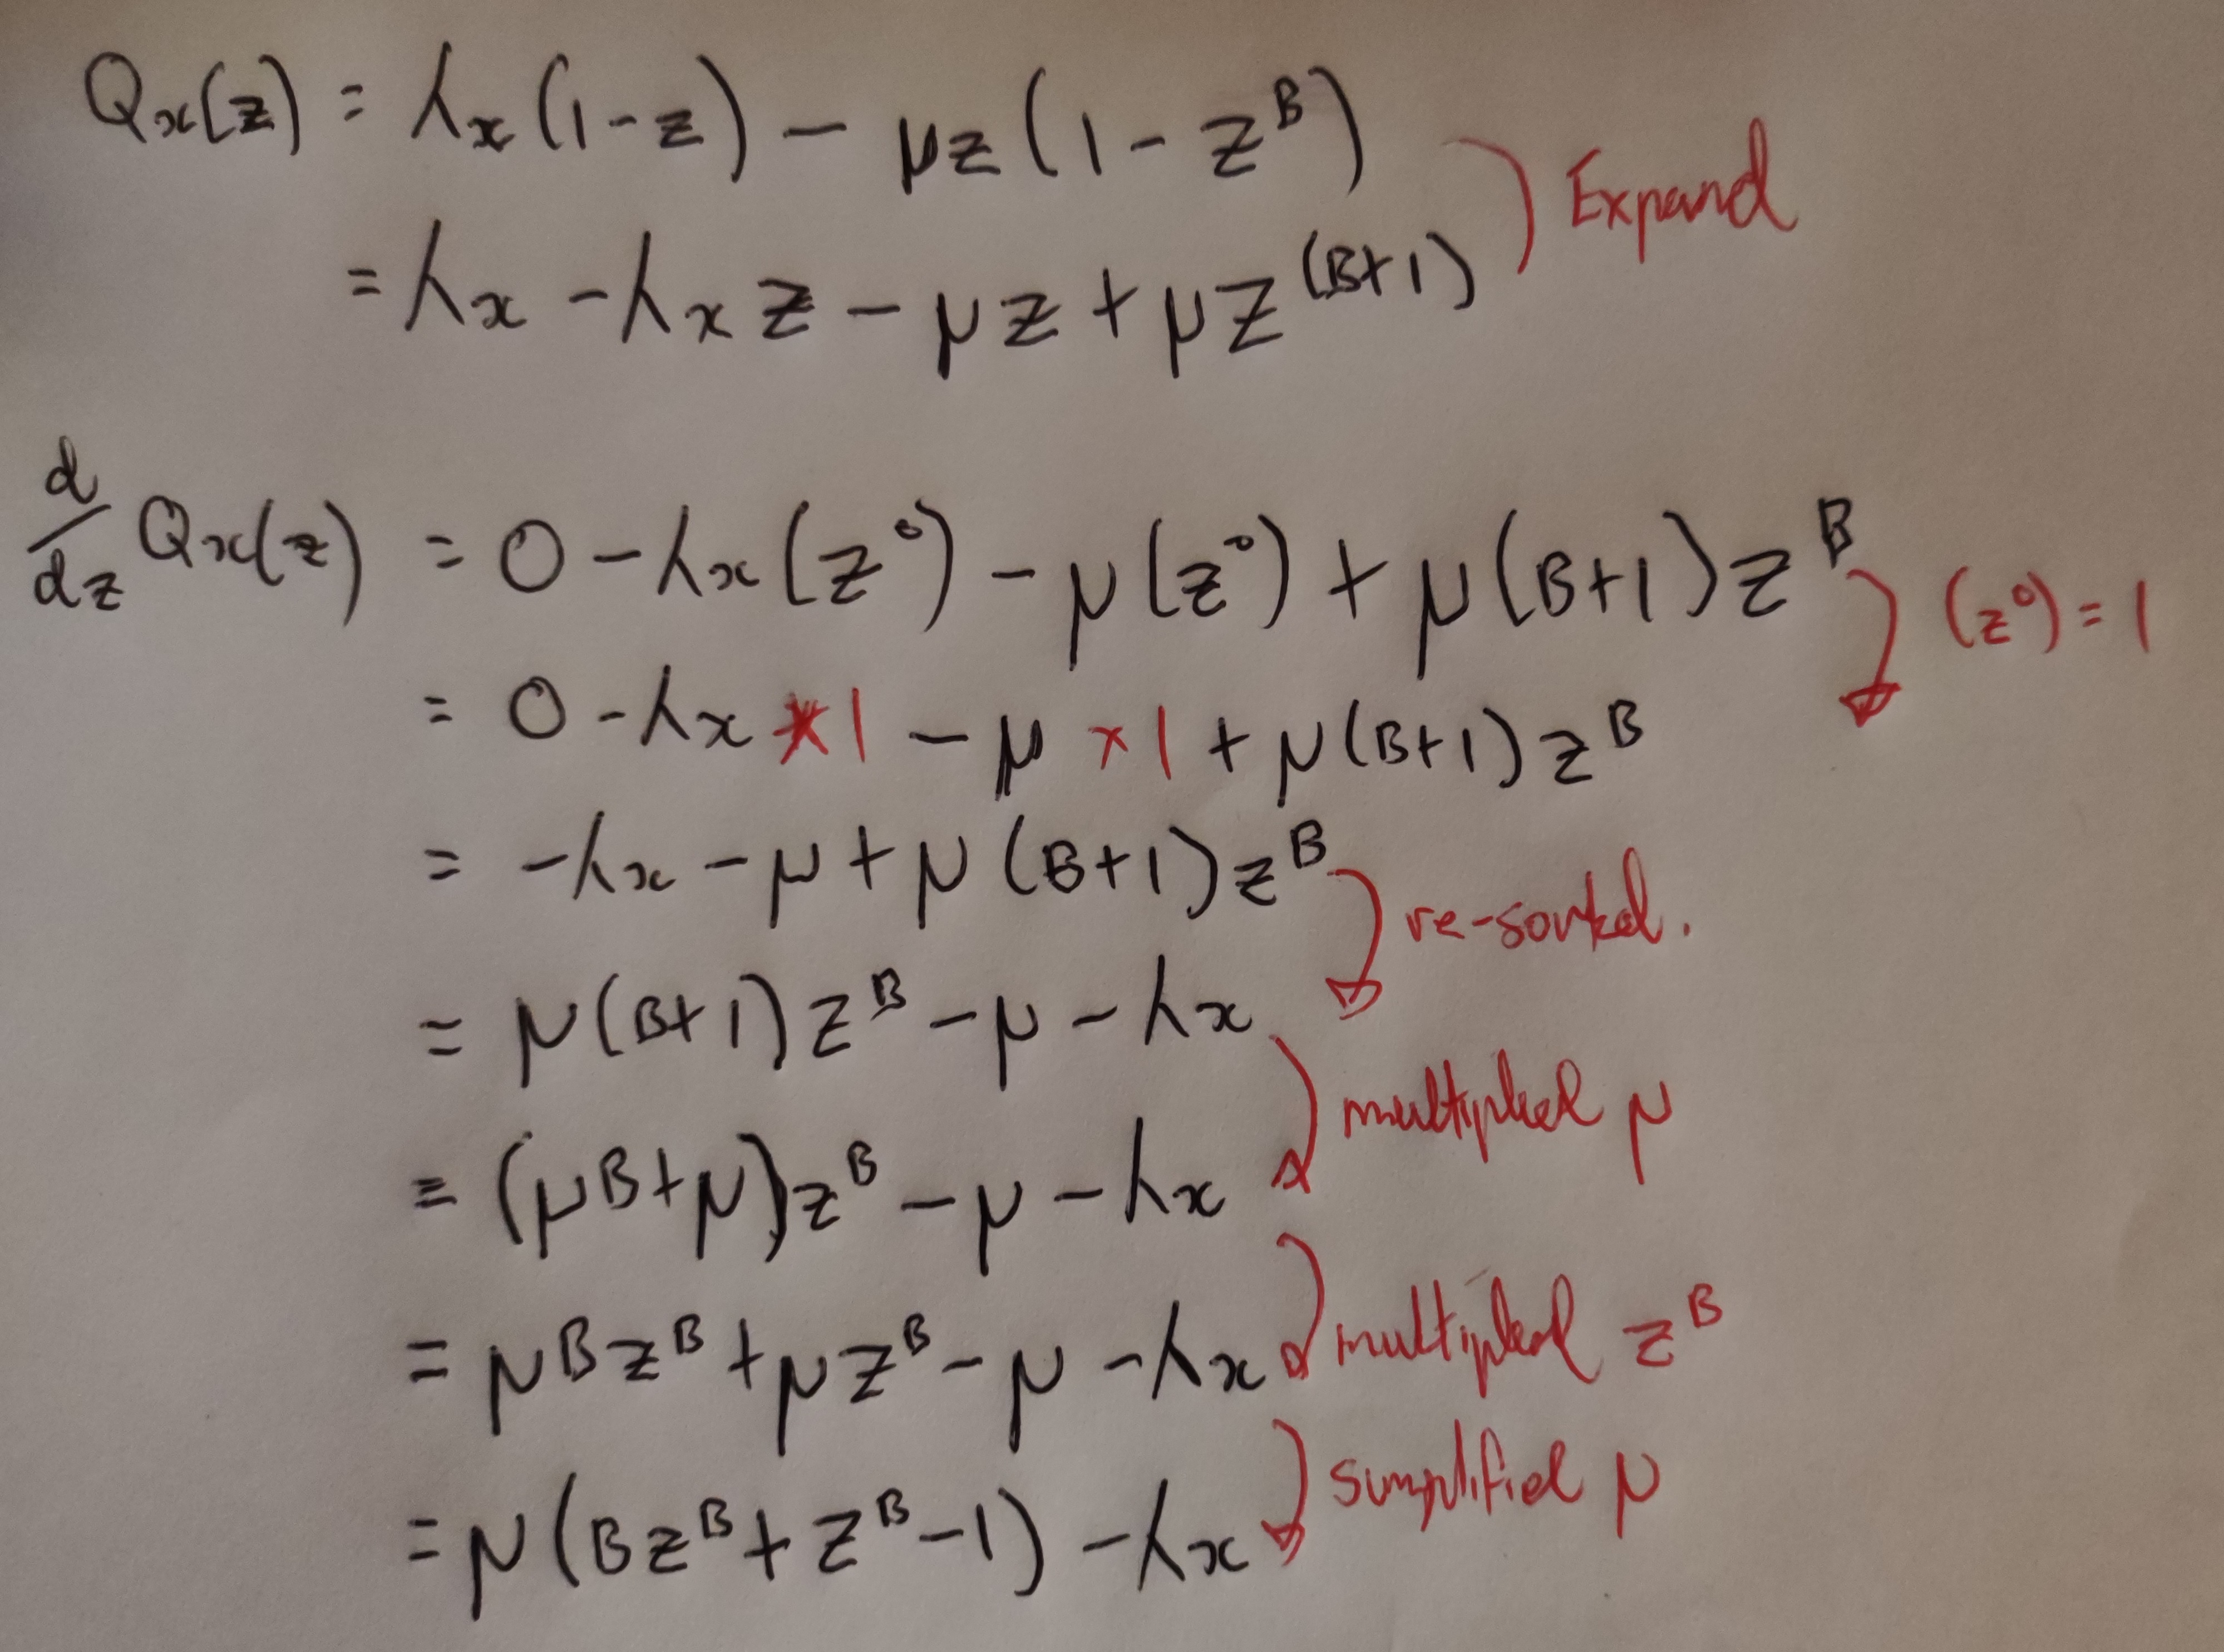 Qx(z) = λx(1-z) - μz(1 - z^B)
Expand
= λx - λx z - μz + μz^(B+1)
d/dz Qx(z) = 0 - λx(z^0) - μ(z^0) + μ(B+1)z^B
(z^0) = 1
= 0 - λx *1 - μ ×1 + μ(B+1)z^B
= -λx - μ + μ(B+1)z^B
re-sorted.
= μ(B+1)z^B - μ - λx
multiplied μ
= (μB+μ)z^B - μ - λx
multiplied z^B
= μBz^B + μz^B - μ - λx
simplified μ
= μ(Bz^B + z^B - 1) - λx